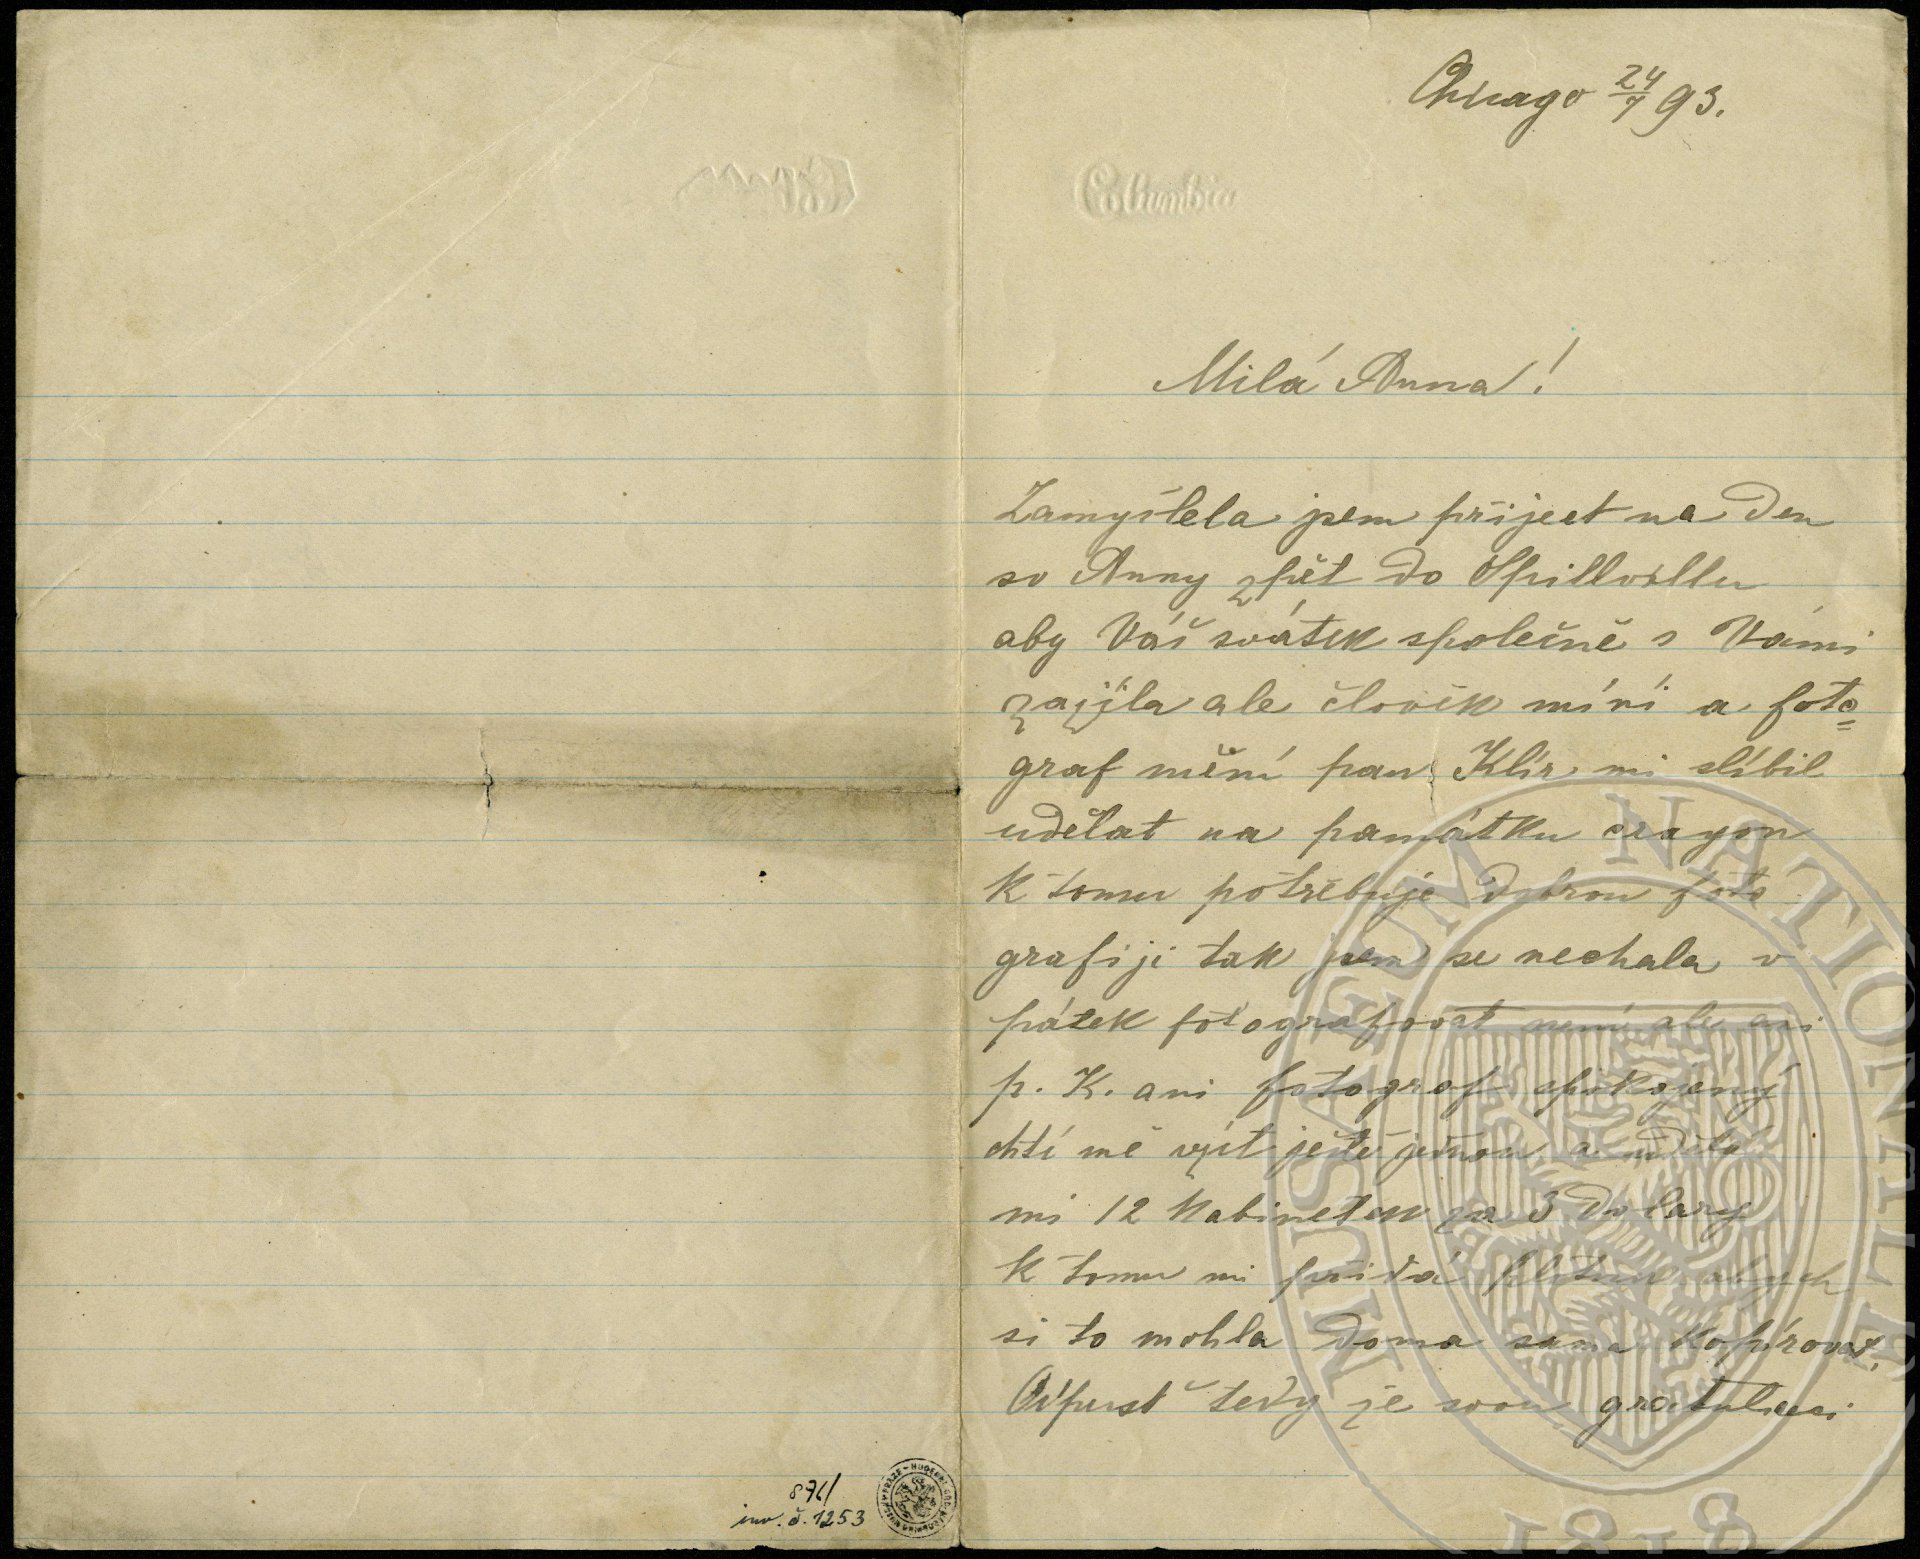 Chicago 24/7 93.
Columbia
Milá Anna!
Zamyšlela jsem přijeet na den
sv Anny zpět do Spillvillu
aby Váš svátek společně s Vámi
zajila ale člověk míní a foto=
graf mění pan Klír mi slíbil
udělat na památku crayon
k tomu potřebuje dobrou foto
grafiji tak jsem se nechala v
pátek fotografovat není ale ani
p. K. ani fotograf spokojený
chtí mě vzít ještě jednou a udělá
mi 12 kabinetek za 3 dolary
k tomu mi přidá plotnu abych
si to mohla doma sama kopírovat.
Odpusť tedy že svou gratulaci
874/
inv. č. 1253
MUSAEUM NATIONALE
1818